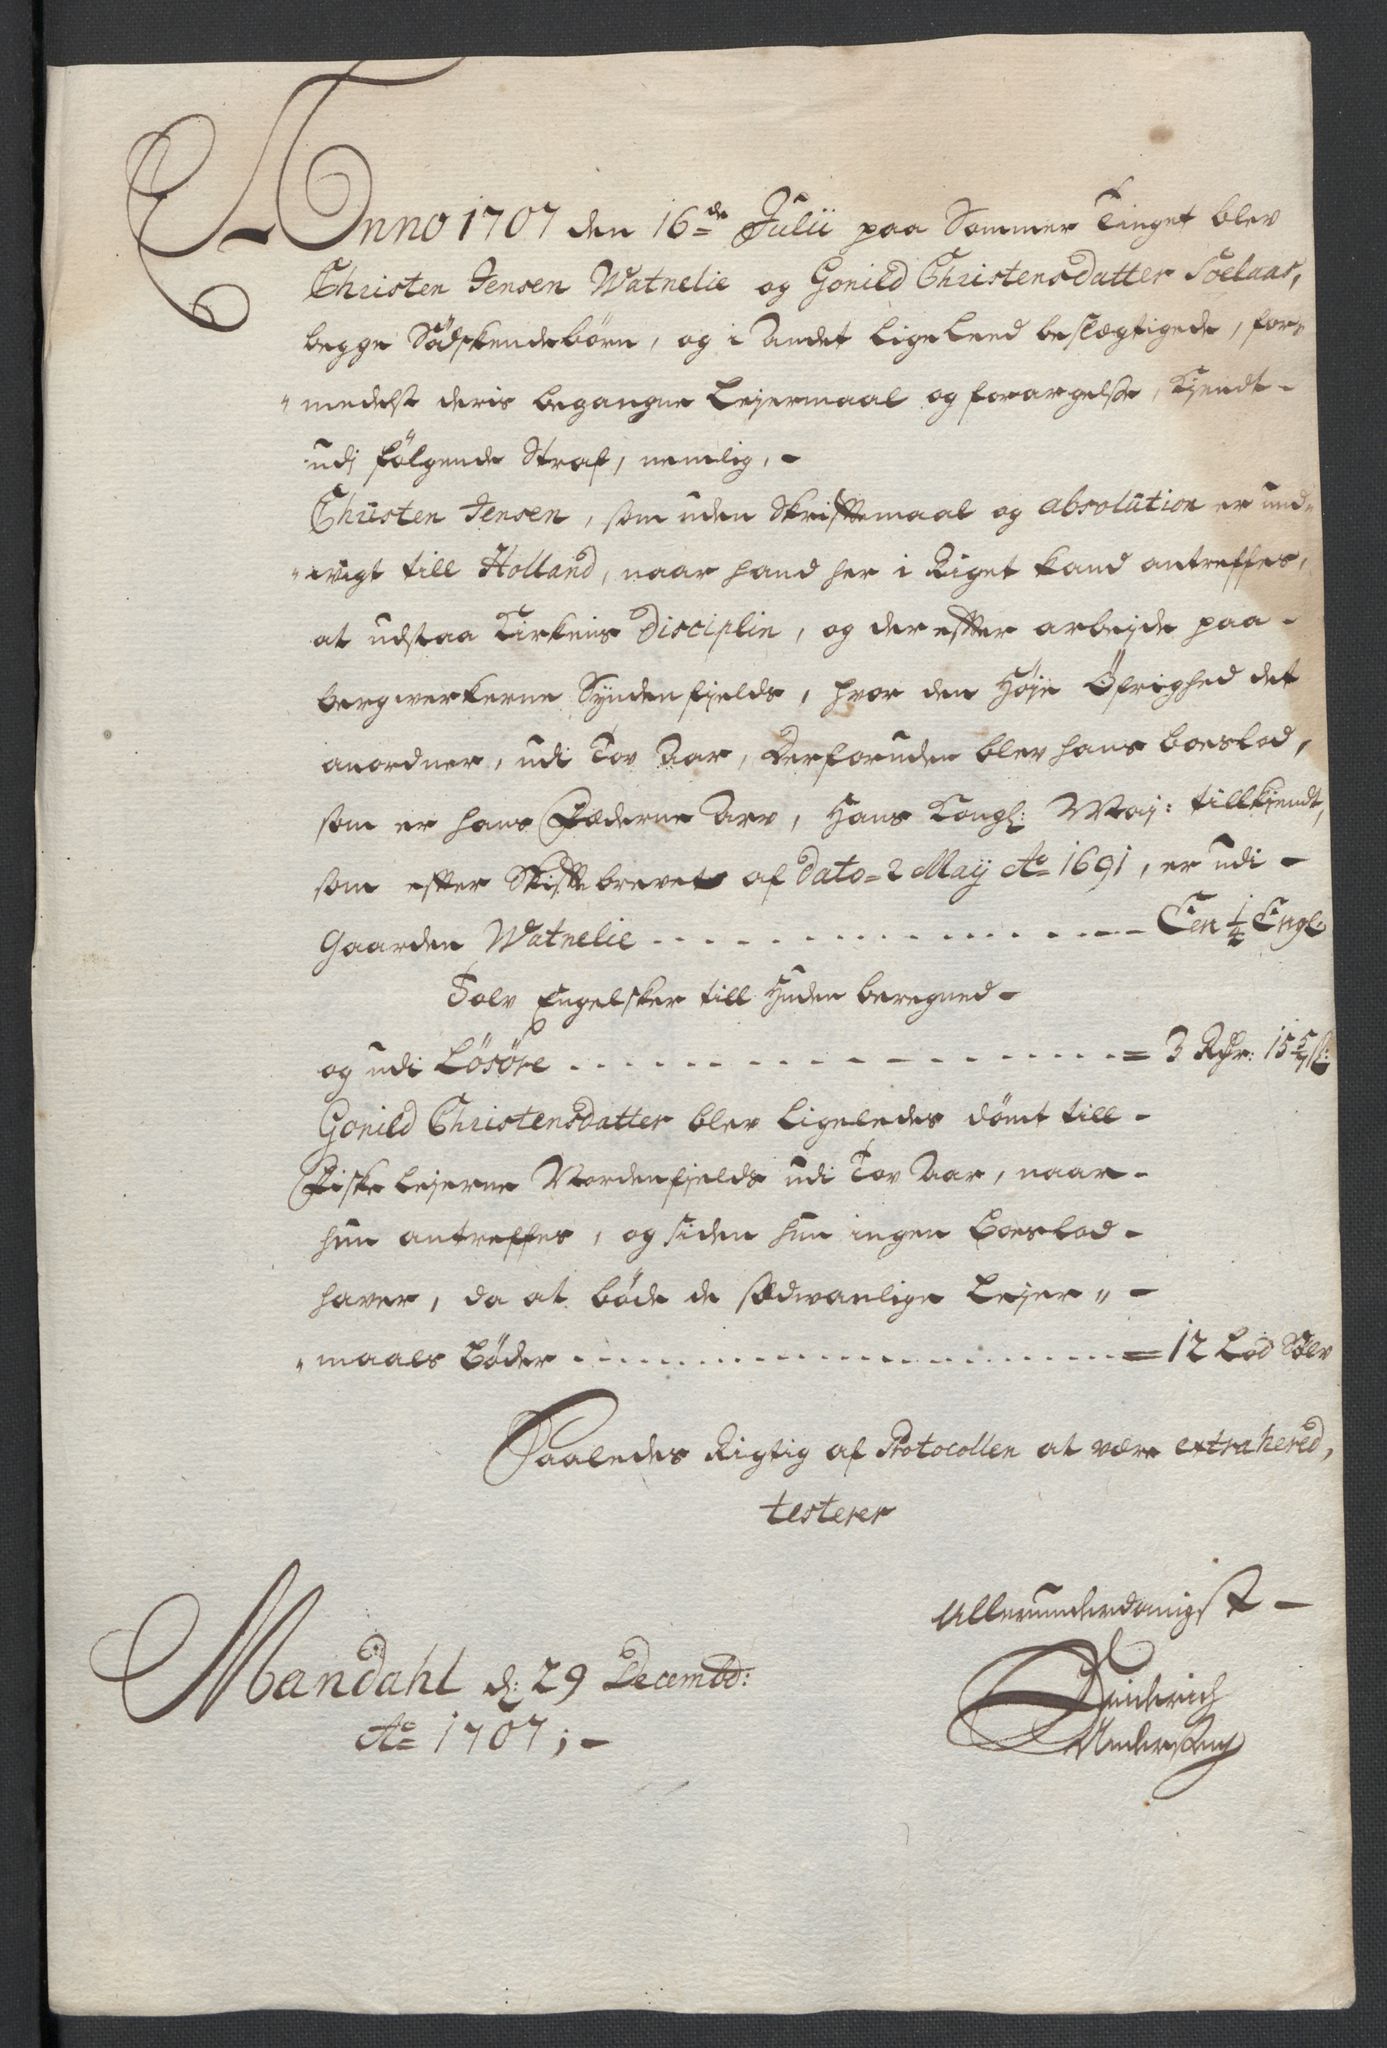 Anno 1707 den 16de Julii paa Sommer Tinget blev
Christen Jensen Watnelie og Gonild Christensdatter Soelaas,
begge Södskendebörn, og i Andet Ligeleed beslægtigede, for„
„medelst deris begangne Lejermaal og forargelse, Kjendt
udj fölgende Straf, nemlig,
Christen Jensen, som uden Skriftemaal og absolution er und„
„vigt till Holland, naar hand her i Riget kand antreffes,
at udstaa Kirkens Disciplin, og der effter arbejde paa
bergwerkerne Syndenfjelds, hvor den Höje Öfrighed det
anordner, udi Tov Aar, Derforuden blev hans boeslod,
som er hans Fæderne Arv, Hans Kongl: May: tillkjendt,
som effter Skifftebrevet af Dato 2 Maij Ao 1691, er udi
Gaarden Watnelie - - - - - - - - Een 1/4 Engl
Tolv Engelsker till Huden beregned
og udi Lösöre - - - - - - - - = 3 Rdr: 15 5/7 sl:
Gonild Christensdatter blev Ligeledes dömt till
Fiske Lejerne Nordenfjelds udi Tov Aar, naar
hun antreffes, og siden hun ingen Boeslod
haver, da at böde de sædwanlige Lejer„
„maals Böder - - - - - - - - = 12 Lod Sölv
Saaledes Rigtig af Protocollen at være extrahered,
testerer
Allerunderdanigst
Mandahl d: 29 Decembd:
Ao 1707;
Diderich